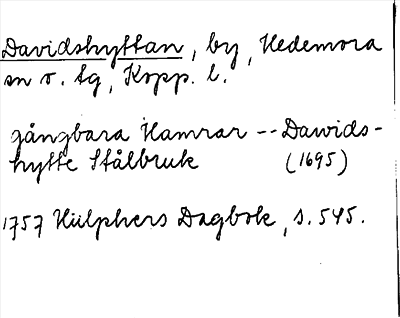 Davidshyttan, by, Hedemora
sn o. tg, Kopp. l.
gångbara Hamrar -- Dawids-
hytte Stålbruk (1695)
1757 Hülphers Dagbok, s. 545.